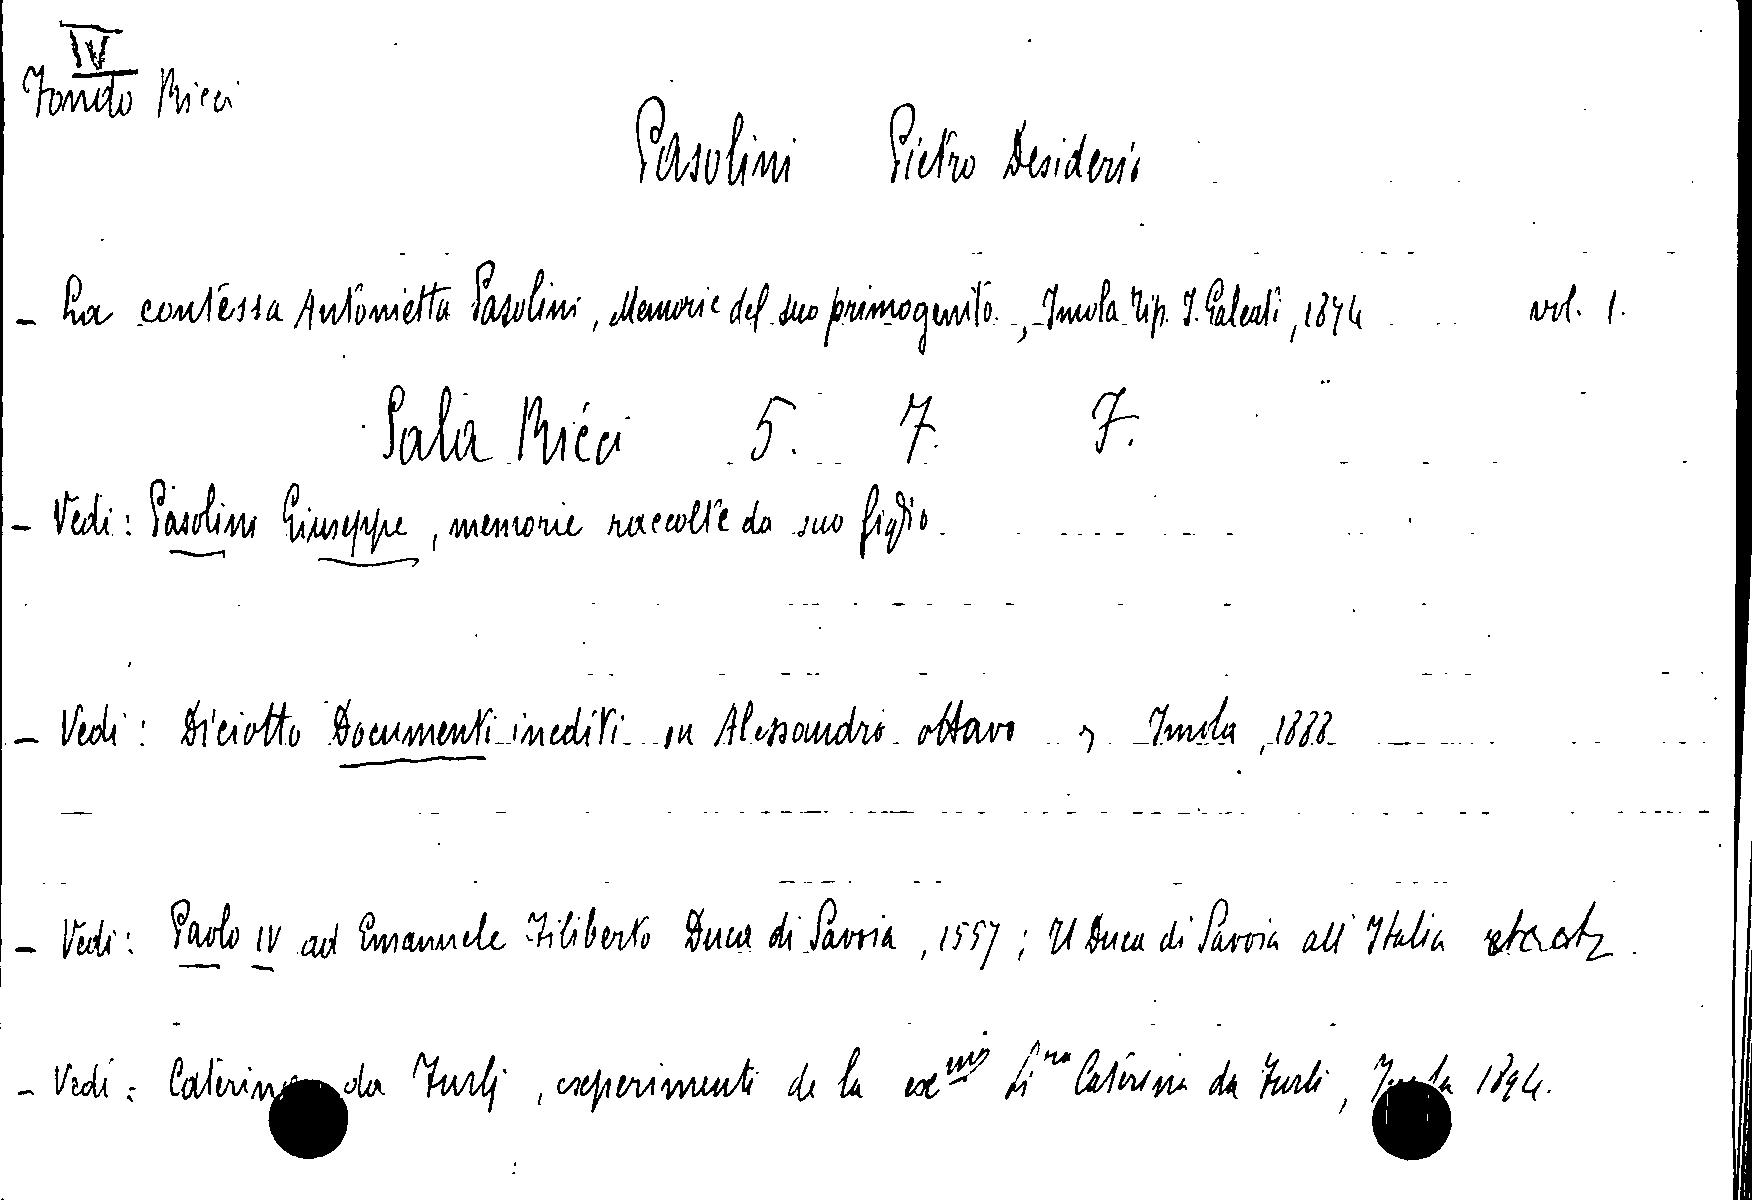 IV
Fondo Ricci
Pasolini Pietro Desiderio
- La contessa Antonietta Pasolini, Memorie del suo primogenito., Imola Tip. I. Galeati, 1874 vol. 1.
Sala Ricci 5. 7. 7.
- Vedi: Pasolini Giuseppe, memorie raccolte da suo figlio.
- Vedi: Diciotto Documenti inediti su Alessandro ottavo, Imola, 1888
- Vedi: Paolo IV ad Emanuele Filiberto Duca di Savoia, 1557; Il Duca di Savoia all'Italia
- Vedi: Caterina da Furlj, experimenti de la ex.ma Caterina da Furli, Imola 1894.